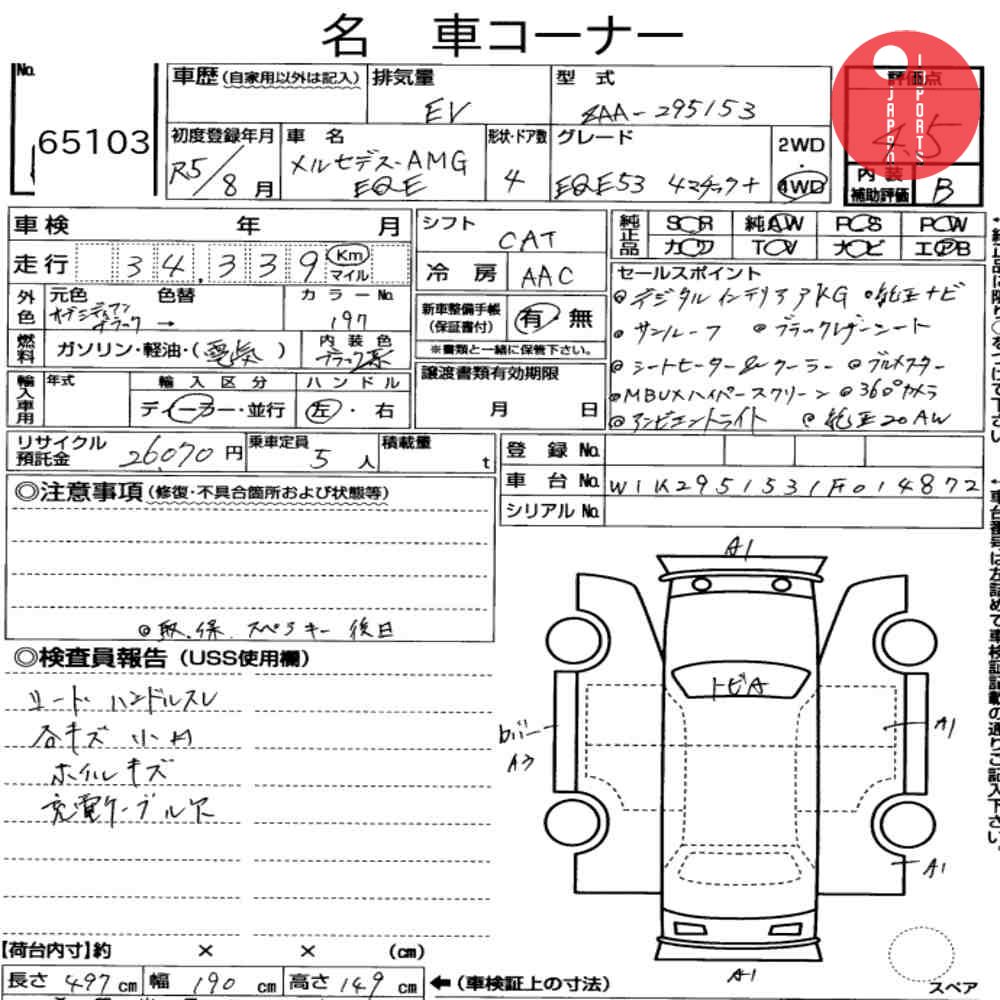 名 車コーナー
No.
65103
車歴(自家用以外は記入)
排気量
EV
型式
ZAA-295153
初度登録年月
R5/8月
車名
メルセデス-AMG
EQE
形状・ドア数
4
グレード
EQE53 4マチック+
2WD
・
4WD
評価点
4.5
内装
補助評価
B
JAPAN
IMPORTS
車検 年 月
走行 34,339 Km
マイル
外色
元色 色替
オブシディアン
ブラック →
カラーNo.
197
燃料
ガソリン・軽油・(電気)
内装色
ブラック系
輸入車用
年式
輸入区分
ディーラー・並行
ハンドル
左・右
シフト
CAT
冷房
AAC
新車整備手帳
(保証書付)
有 無
※書類と一緒に保管下さい。
譲渡書類有効期限
月 日
純正品
SR 純AW PS PW
カワ TV ナビ エアB
セールスポイント
◎デジタルインテリアPKG ◎純正ナビ
◎サンルーフ ◎ブラックレザーシート
◎シートヒーター&クーラー ◎ブルメスター
◎MBUXハイパースクリーン ◎360°カメラ
◎アンビエントライト ◎純正20AW
リサイクル
預託金
26,070円
乗車定員
5人
積載量
t
登録No.
車台No.
W1K2951531F014872
シリアルNo.
◎注意事項(修復・不具合箇所および状態等)
◎取、保、スペアキー後日
◎検査員報告(USS使用欄)
シート・ハンドルスレ
各キズ小凹
ホイルキズ
充電ケーブル欠
A1
トビA
A3
A1
A1
A1
スペア
【荷台内寸】約 × × (cm)
長さ 497cm 幅 190cm 高さ 149cm
←(車検証上の寸法)